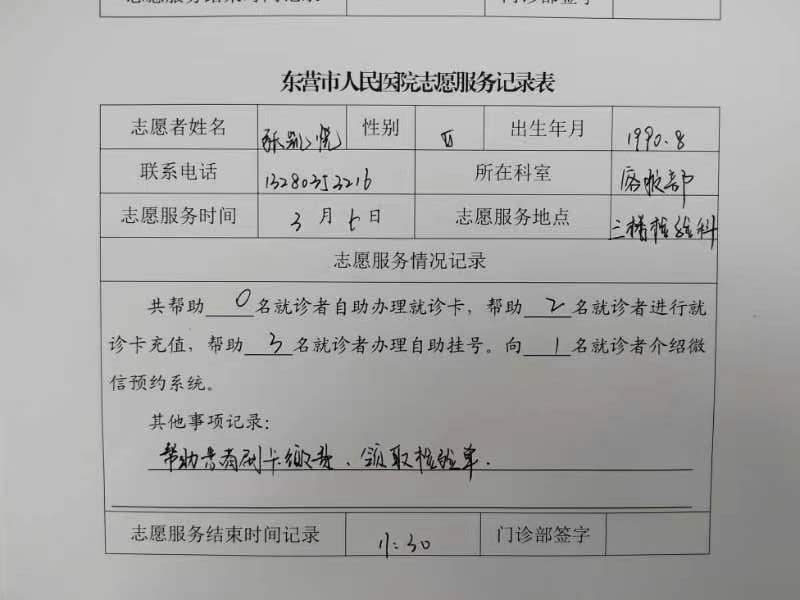 志愿服务结束时间记录 门诊部签字
东营市人民医院志愿服务记录表
志愿者姓名 性别 出生年月 1990.8
联系电话 13280353216 所在科室
志愿服务时间 3月5日 志愿服务地点 三楼检验科
志愿服务情况记录
共帮助0名就诊者自助办理就诊卡，帮助2名就诊者进行就
诊卡充值，帮助3名就诊者办理自助挂号。向1名就诊者介绍微
信预约系统。
其他事项记录：
帮助患者刷卡缴费、领取检验单.
志愿服务结束时间记录 11:30 门诊部签字